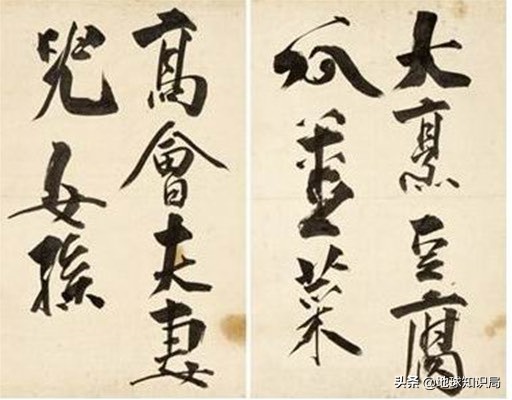 大烹豆腐
瓜薑菜
高會夫妻
兒女孫
头条 @地球知识局